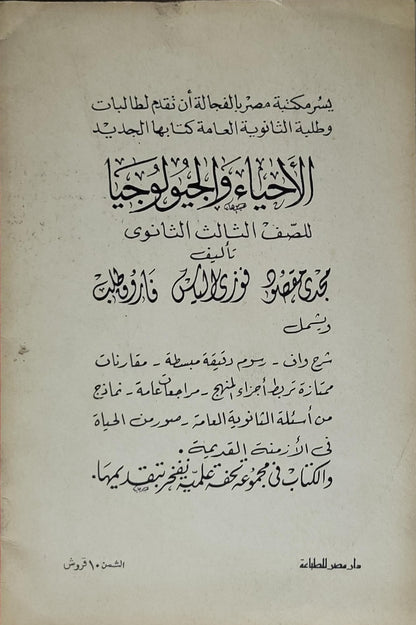 يسر مكتبة مصر بالفجالة أن تقدم لطالبات
وطلبة الثانوية العامة كتابها الجديد
الأحياء والجيولوجيا
للصف الثالث الثانوى
تأليف
مجدى مقصود فوزى الياس فاروق طلب
ويشمل
شرح واف - رسوم دقيقة مبسطة - مقارنات
ممتازة تربط أجزاء المنهج - مراجعات عامة - نماذج
من أسئلة الثانوية العامة - صور من الحياة
فى الأزمنة القديمة .
والكتاب فى مجموعة تحفة علمية نفخر بتقديمها .
دار مصر للطباعة
الثمن ١٠ قروش